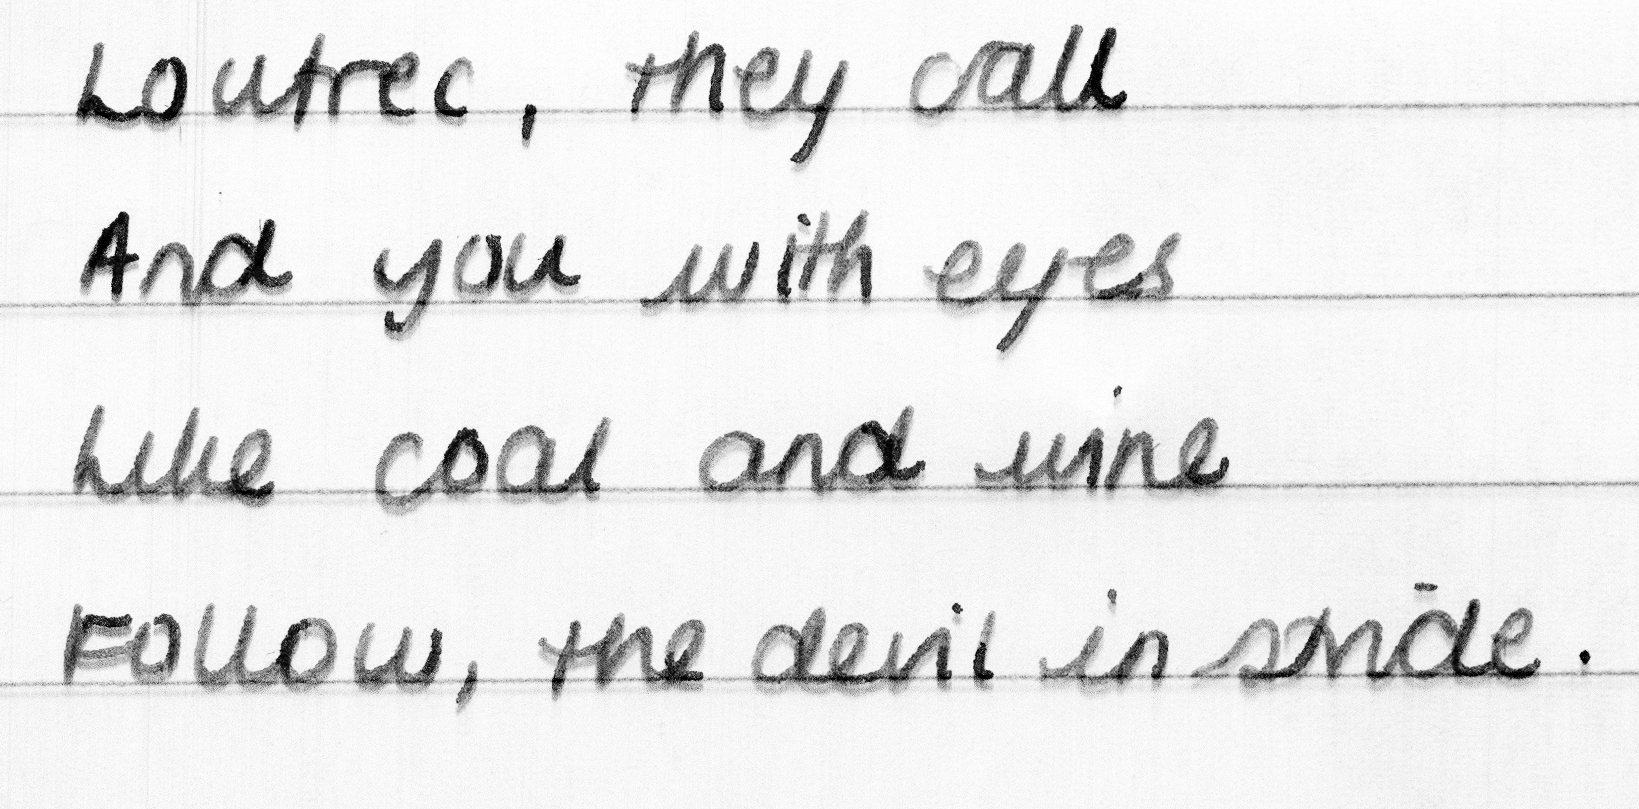 Loutrec, they call
And you with eyes
Like coal and wine
Follow, the devil in stride.